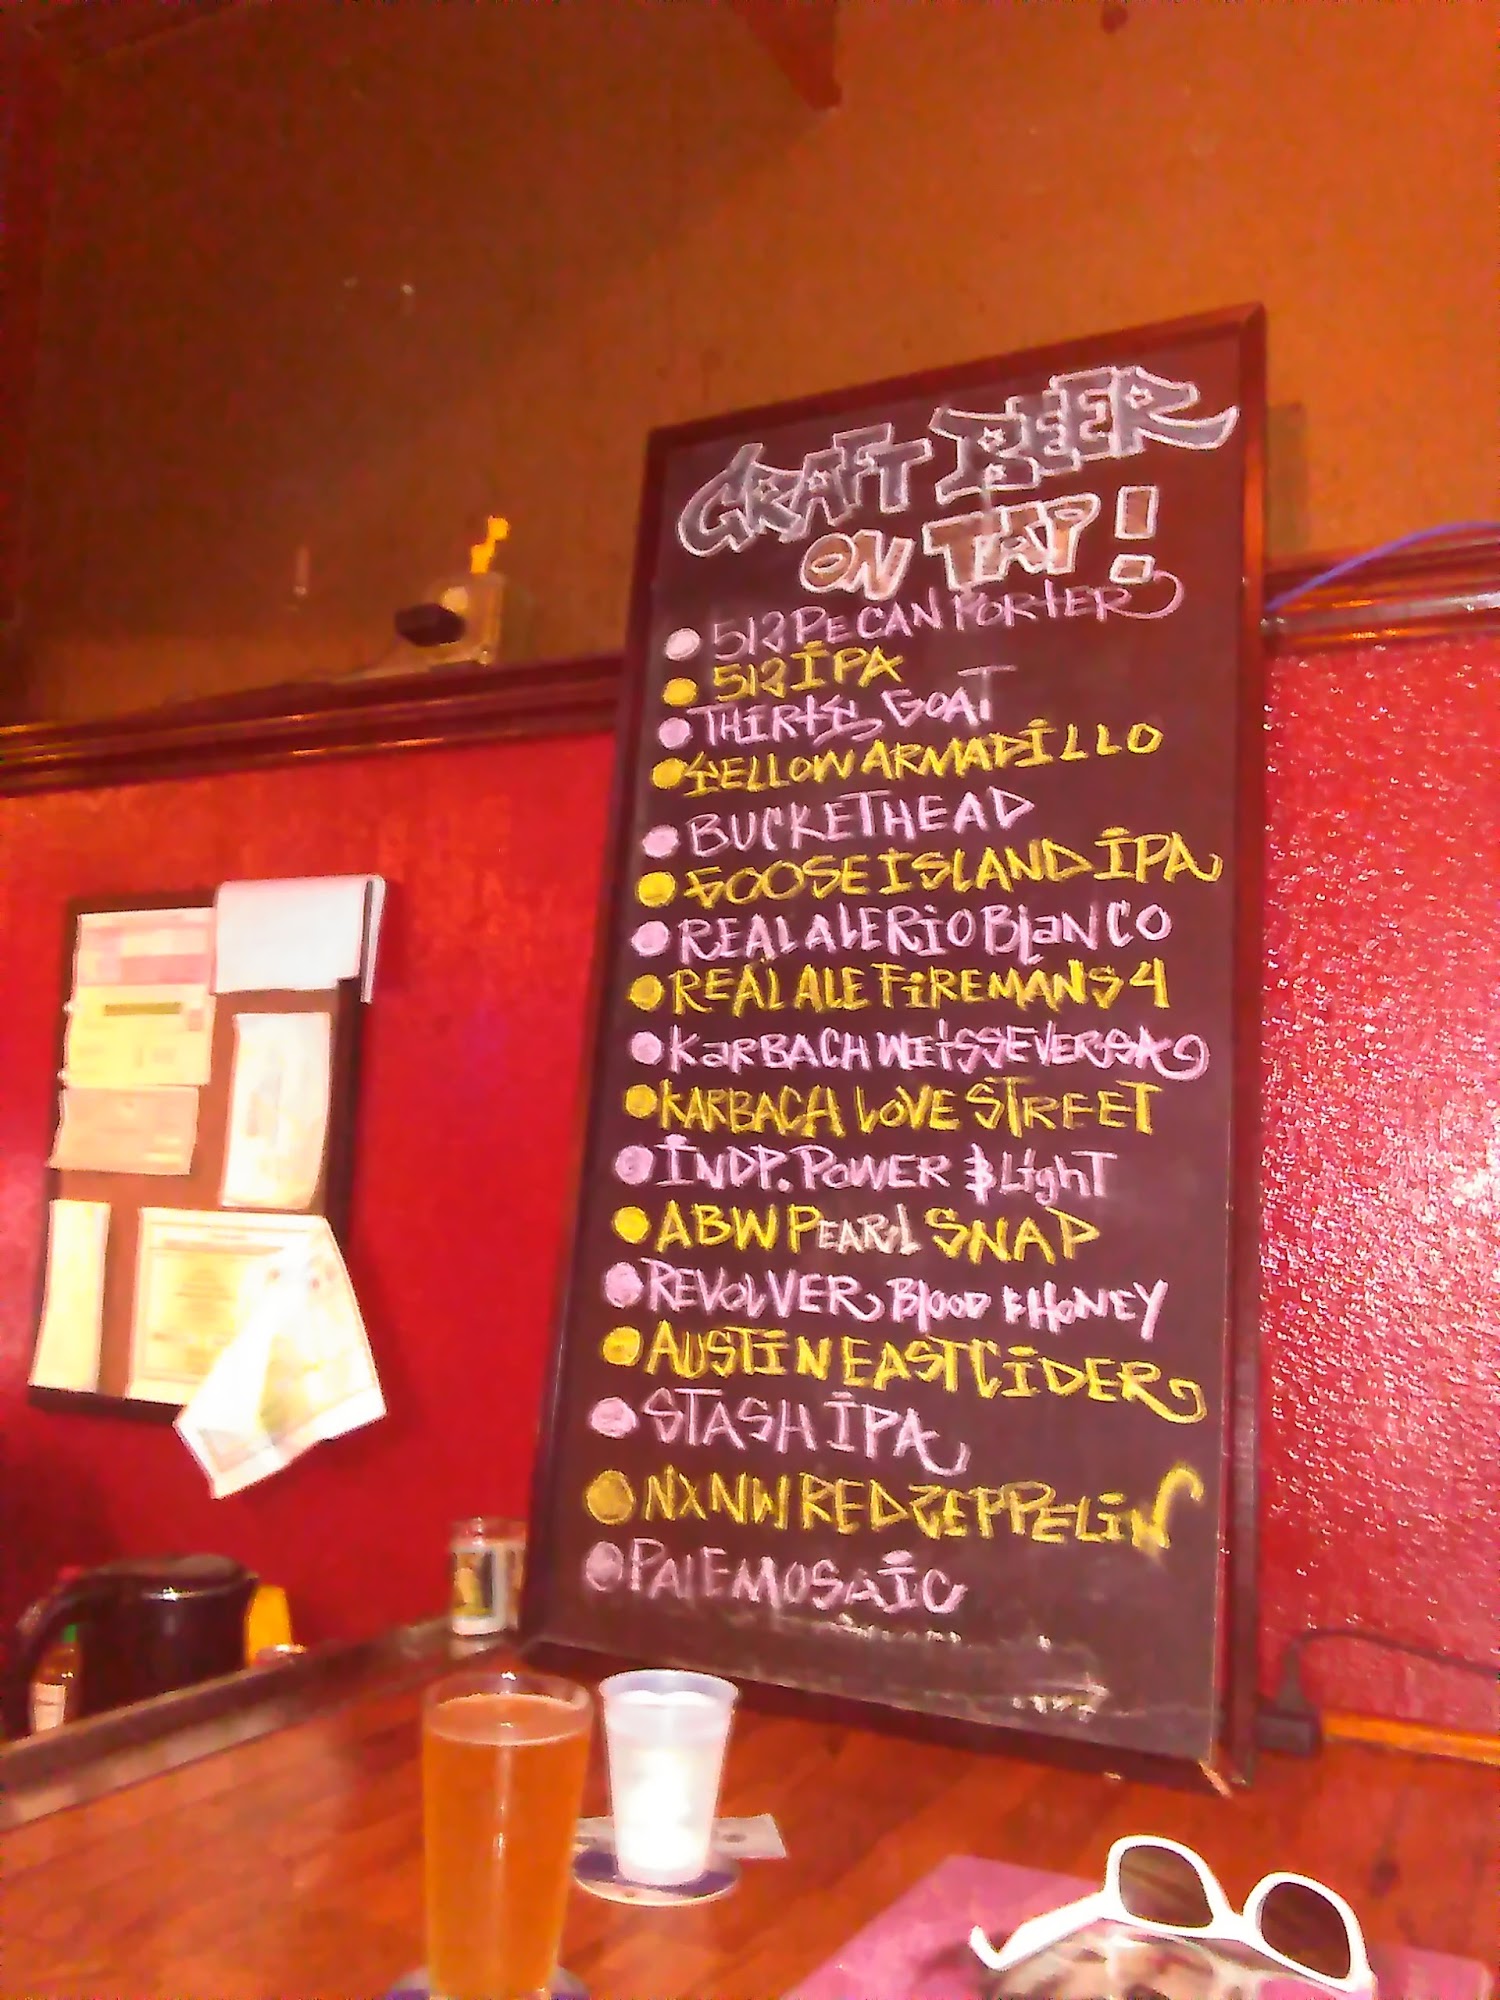 CRAFT BEER
ON TAP!
512 PECAN PORTER
512 IPA
THIRSTY GOAT
YELLOW ARMADILLO
BUCKETHEAD
GOOSE ISLAND IPA
REAL ALE RIO BLANCO
REAL ALE FIREMANS 4
KARBACH WEISSEVERSA
KARBACH LOVE STREET
INDP. POWER & LIGHT
ABW PEARL SNAP
REVOLVER BLOOD & HONEY
AUSTIN EAST CIDER
STASH IPA
NXNW RED ZEPPELIN
PALE MOSAIC